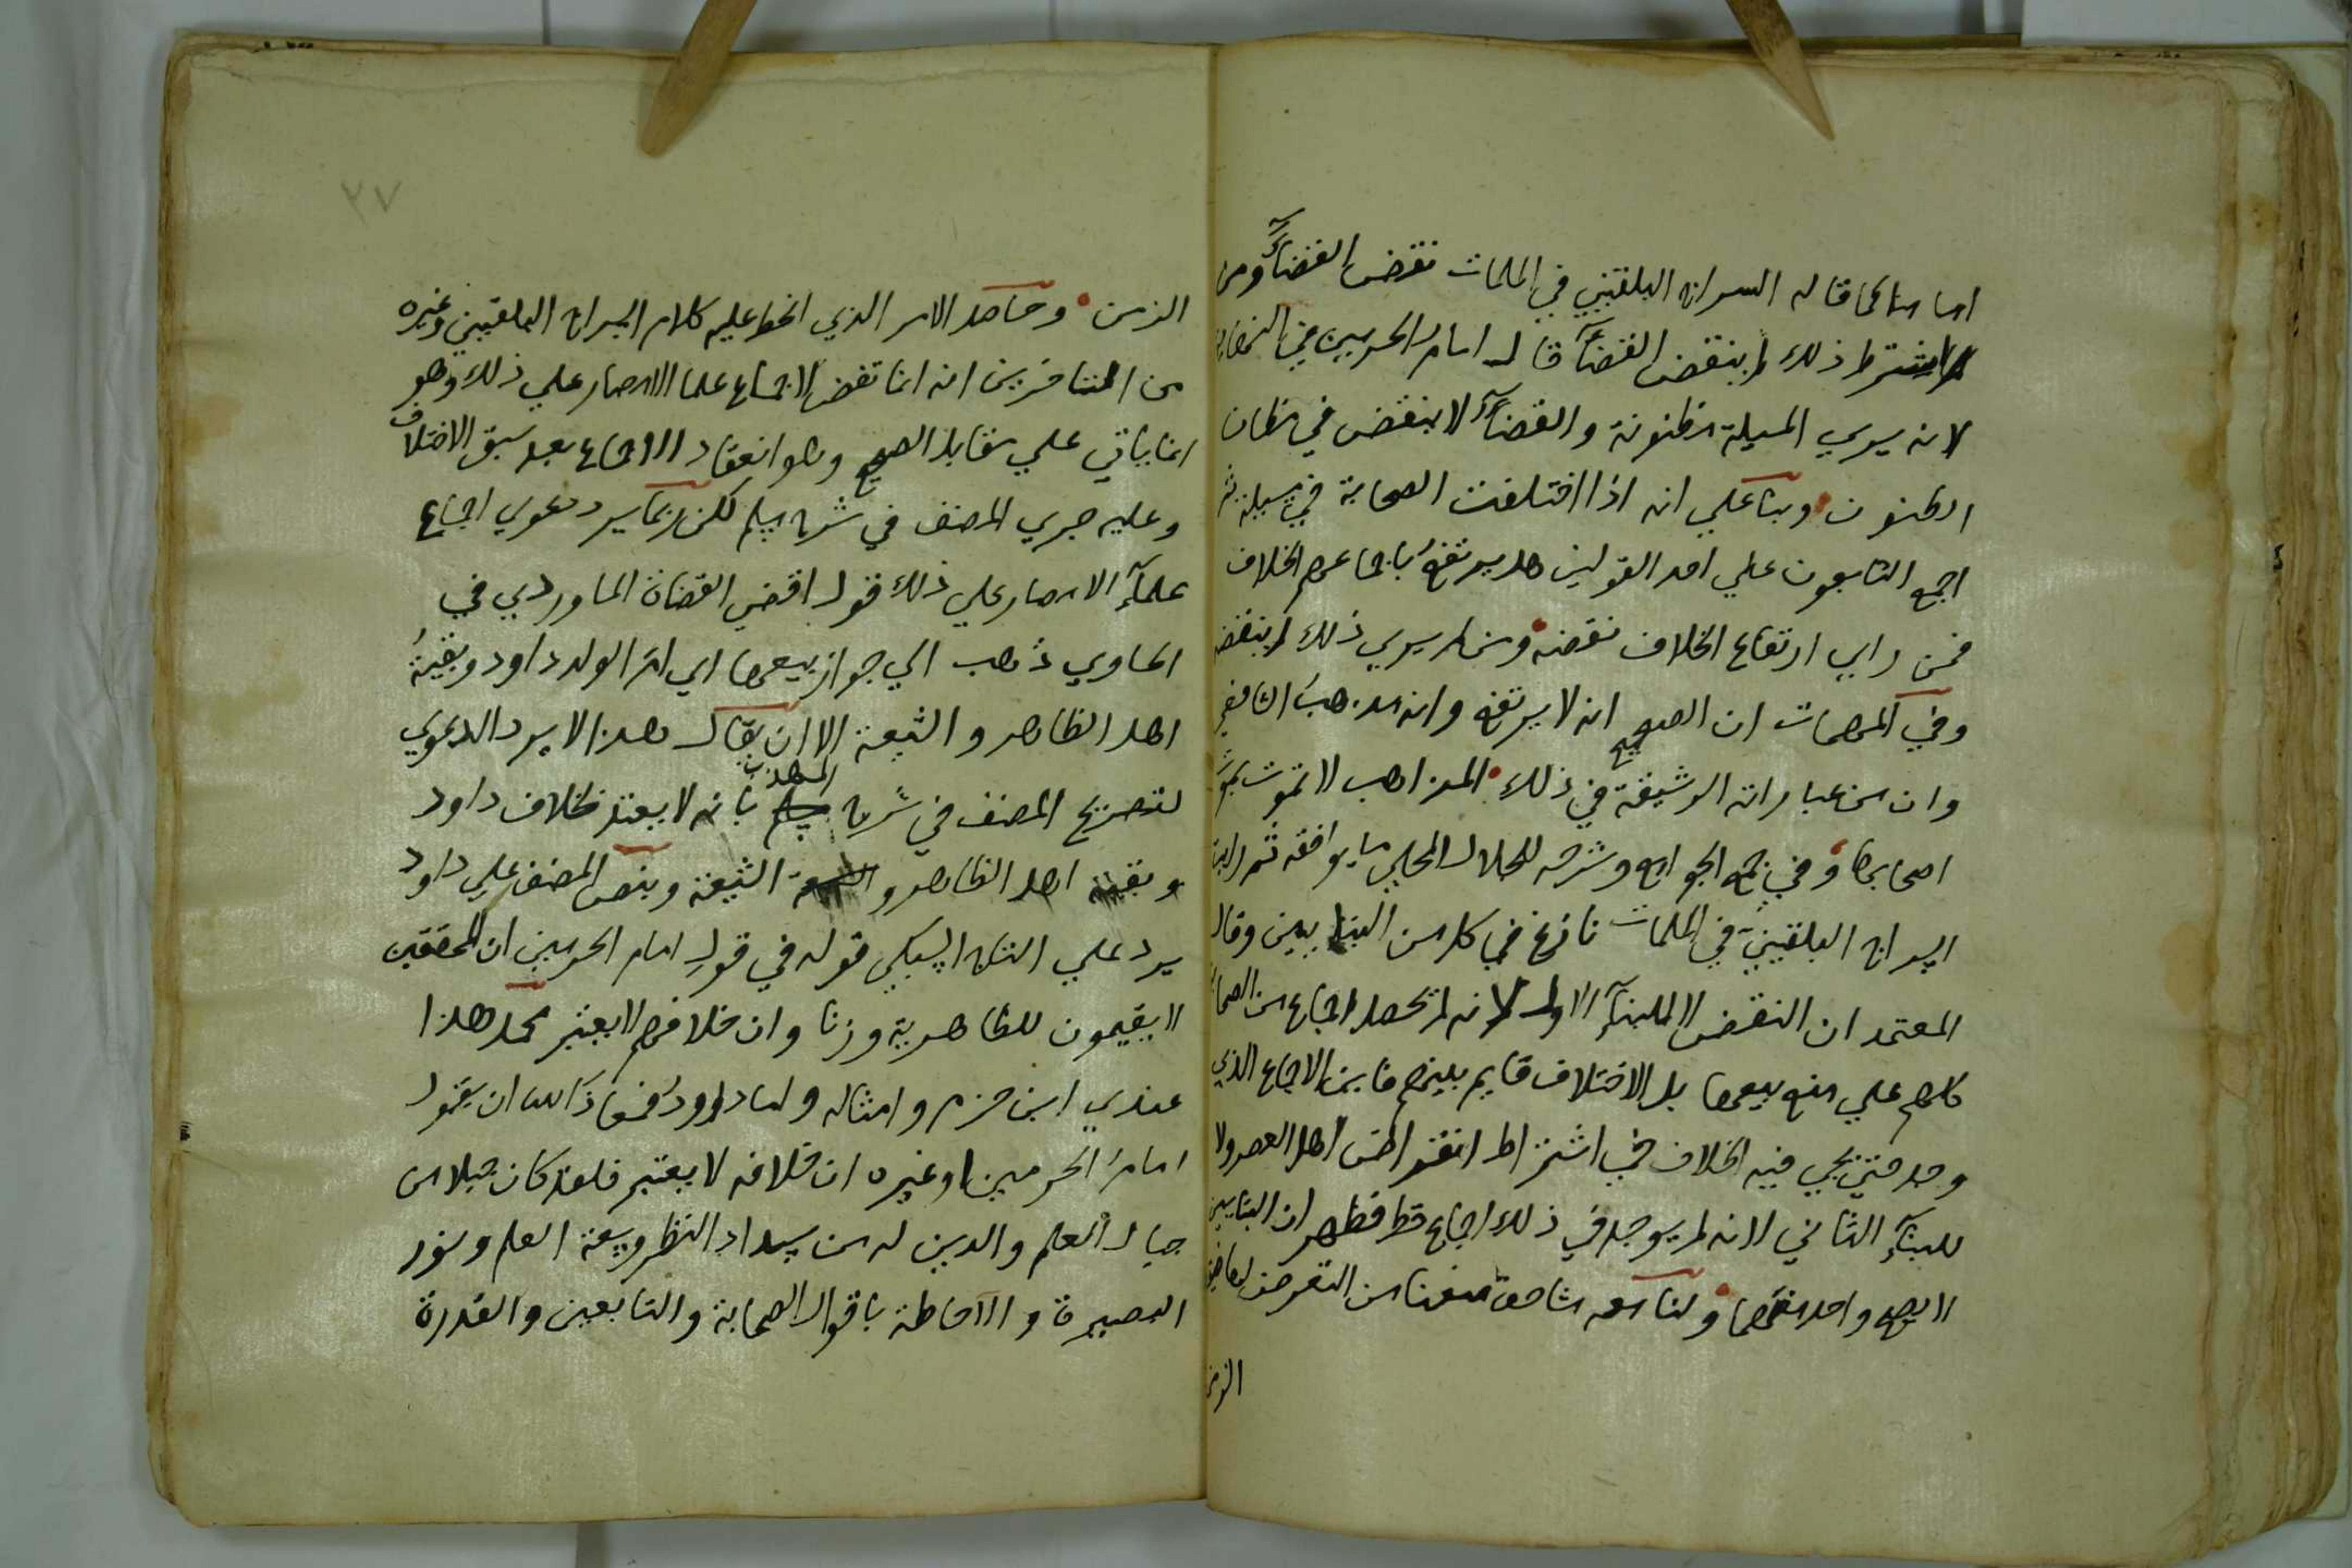 اجماعا كما قاله السراج البلقيني في الملمات نقض القضاء ومن
لم يشترط ذلك لم ينقض القضاء قال امام الحرمين في النهاية
لانه يري المسيلة مظنونة والقضاء لا ينقض في مظان
الظنون وبنا علي انه اذا اختلفت الصحابة في مسيلة ثم
اجمع التابعون علي احد القولين هل يرتفع باجماعهم الخلاف
فمن راي ارتفاع الخلاف نقضه ومن لم يري ذلك لم ينقضه
وفي المهمات ان الصحيح انه لا يرتفع وانه مذهب الشافعي
وان من عباراته الرشيقة في ذلك المذاهب لا تموت بموت
اصحابها وفي جمع الجوامع وشرحه للجلال المحلي ما يوافقه ثم رايت
السراج البلقيني في الملمات نازع في كل من البنايين وقال
المعتمد ان النقض لا للبناء الاول لانه لم يحصل اجماع من الصحابة
كلهم علي منع بيعها بل الاختلاف قايم بينهم فاين الاجماع الذي
وجد حتي يجي فيه الخلاف في اشتراط انقراض اهل العصر ولا
للبناء الثاني لانه لم يوجد في ذلك اجماع قط فظهر ان البنايين
لا يصح واحد منهما ولنا معه مناقشة منعنا من التعرض لها ضيق
الزمن
٢٧
الزمن وحاصل الامر الذي انحط عليه كلام السراج البلقيني وغيره
من المتاخرين انه انما نقض لاجماع علما الامصار علي ذلك وهو
انما ياتي علي مقابل الصحيح وهو انعقاد الاجماع بعد سبق الاختلاف
وعليه جري المصنف في شرح مسلم لكن ربما يرد دعوي اجماع
علماء الامصار علي ذلك قول اقضي القضاة الماوردي في
الحاوي ذهب الي جواز بيعها اي ام الولد داود وبقية
اهل الظاهر والشيعة الا ان يقال هذا لا يرد الدعوي
لتصريح المصنف في شرح المهذب بانه لا يعتد بخلاف داود
وبقية اهل الظاهر و الشيعة وبنص المصنف علي داود
يرد علي التاج السبكي قوله في قول امام الحرمين ان المحققين
لا يقيمون للظاهرية وزنا وان خلافهم لا يعتبر محل هذا
عندي ابن حزم وامثاله واما داوود فمعاذ الله ان يقول
امام الحرمين او غيره ان خلافه لا يعتبر فلقد كان جبلا من
جبال العلم والدين له من سداد النظر وسعة العلم ونور
البصيرة والاحاطة باقوال الصحابة والتابعين والقدرة